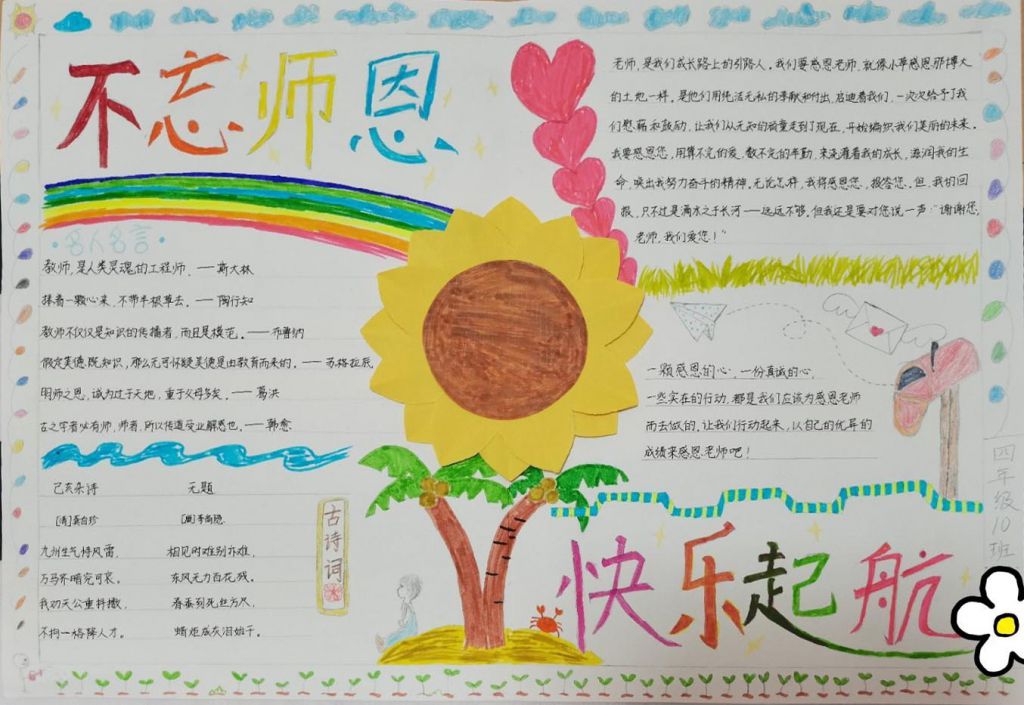 不忘师恩
老师，是我们成长路上的引路人。我们要感恩老师，就像小草感恩那博大
的土地一样，是他们用纯洁无私的奉献和付出，启迪着我们，一次次给予了我
们慰藉和鼓励，让我们从无知的孩童走到了现在，开始编织我们美丽的未来。
我要感恩您，用算不完的爱，数不完的辛勤，来浇灌着我的成长，滋润我的生
命，唤出我努力奋斗的精神。无论怎样，我将感恩您、报答您。但，我们的回
报，只不过是滴水之于长河——远远不够。但我还是要对您说一声：“谢谢您，
老师，我们爱您！”
·名人名言·
教师，是人类灵魂的工程师。——斯大林
捧着一颗心来，不带半根草去。——陶行知
教师不仅仅是知识的传播者，而且是模范。——布鲁纳
假定美德既知识，那么无可怀疑美德是由教育而来的。——苏格拉底
明师之恩，诚为过于天地，重于父母多矣。——葛洪
古之学者必有师，师者，所以传道受业解惑也。——韩愈
一颗感恩的心，一份真诚的心，
一些实在的行动，都是我们应该为感恩老师
而去做的，让我们行动起来，以自己的优异的
成绩来感恩老师吧！
四年级10班
古诗词
己亥杂诗
[清]龚自珍
九州生气恃风雷，
万马齐喑究可哀。
我劝天公重抖擞，
不拘一格降人才。
无题
[唐]李商隐
相见时难别亦难，
东风无力百花残。
春蚕到死丝方尽，
蜡炬成灰泪始干。
快乐起航